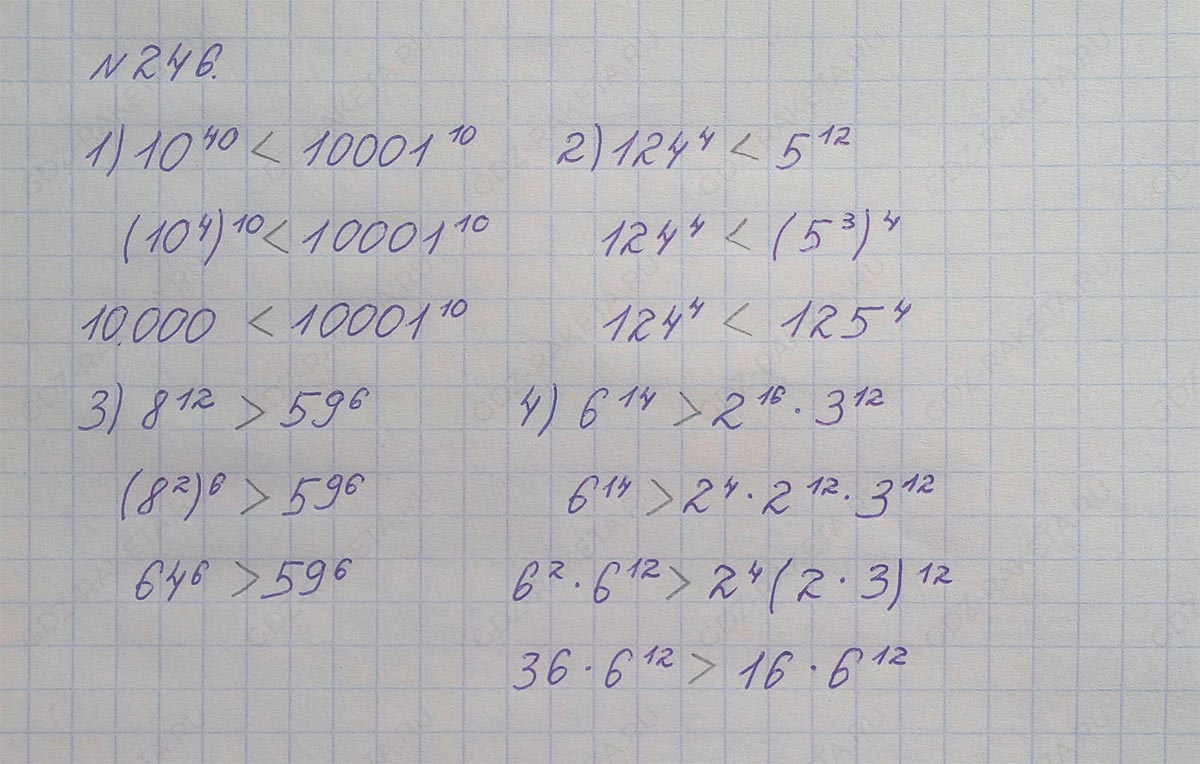 №246.
1) 10⁴⁰ < 10001¹⁰
(10⁴)¹⁰ < 10001¹⁰
10.000 < 10001¹⁰
2) 124⁴ < 5¹²
124⁴ < (5³)⁴
124⁴ < 125⁴
3) 8¹² > 59⁶
(8²)⁶ > 59⁶
64⁶ > 59⁶
4) 6¹⁴ > 2¹⁶ · 3¹²
6¹⁴ > 2⁴ · 2¹² · 3¹²
6² · 6¹² > 2⁴ (2 · 3)¹²
36 · 6¹² > 16 · 6¹²
GDZ-RAKETA.RU